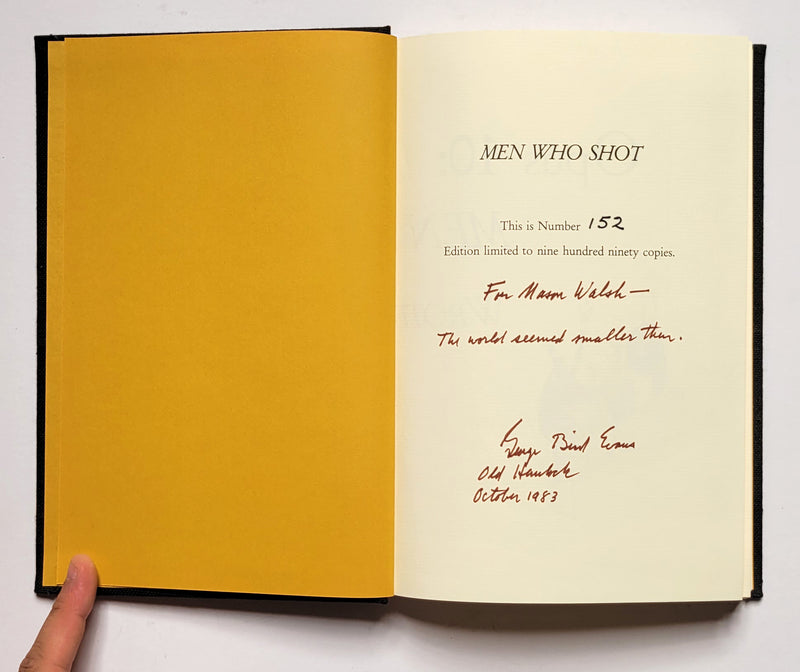 MEN WHO SHOT
This is Number 152
Edition limited to nine hundred ninety copies.
For Mason Walsh—
The world seemed smaller then.
George Bird Evans
Old Hemlock
October 1983